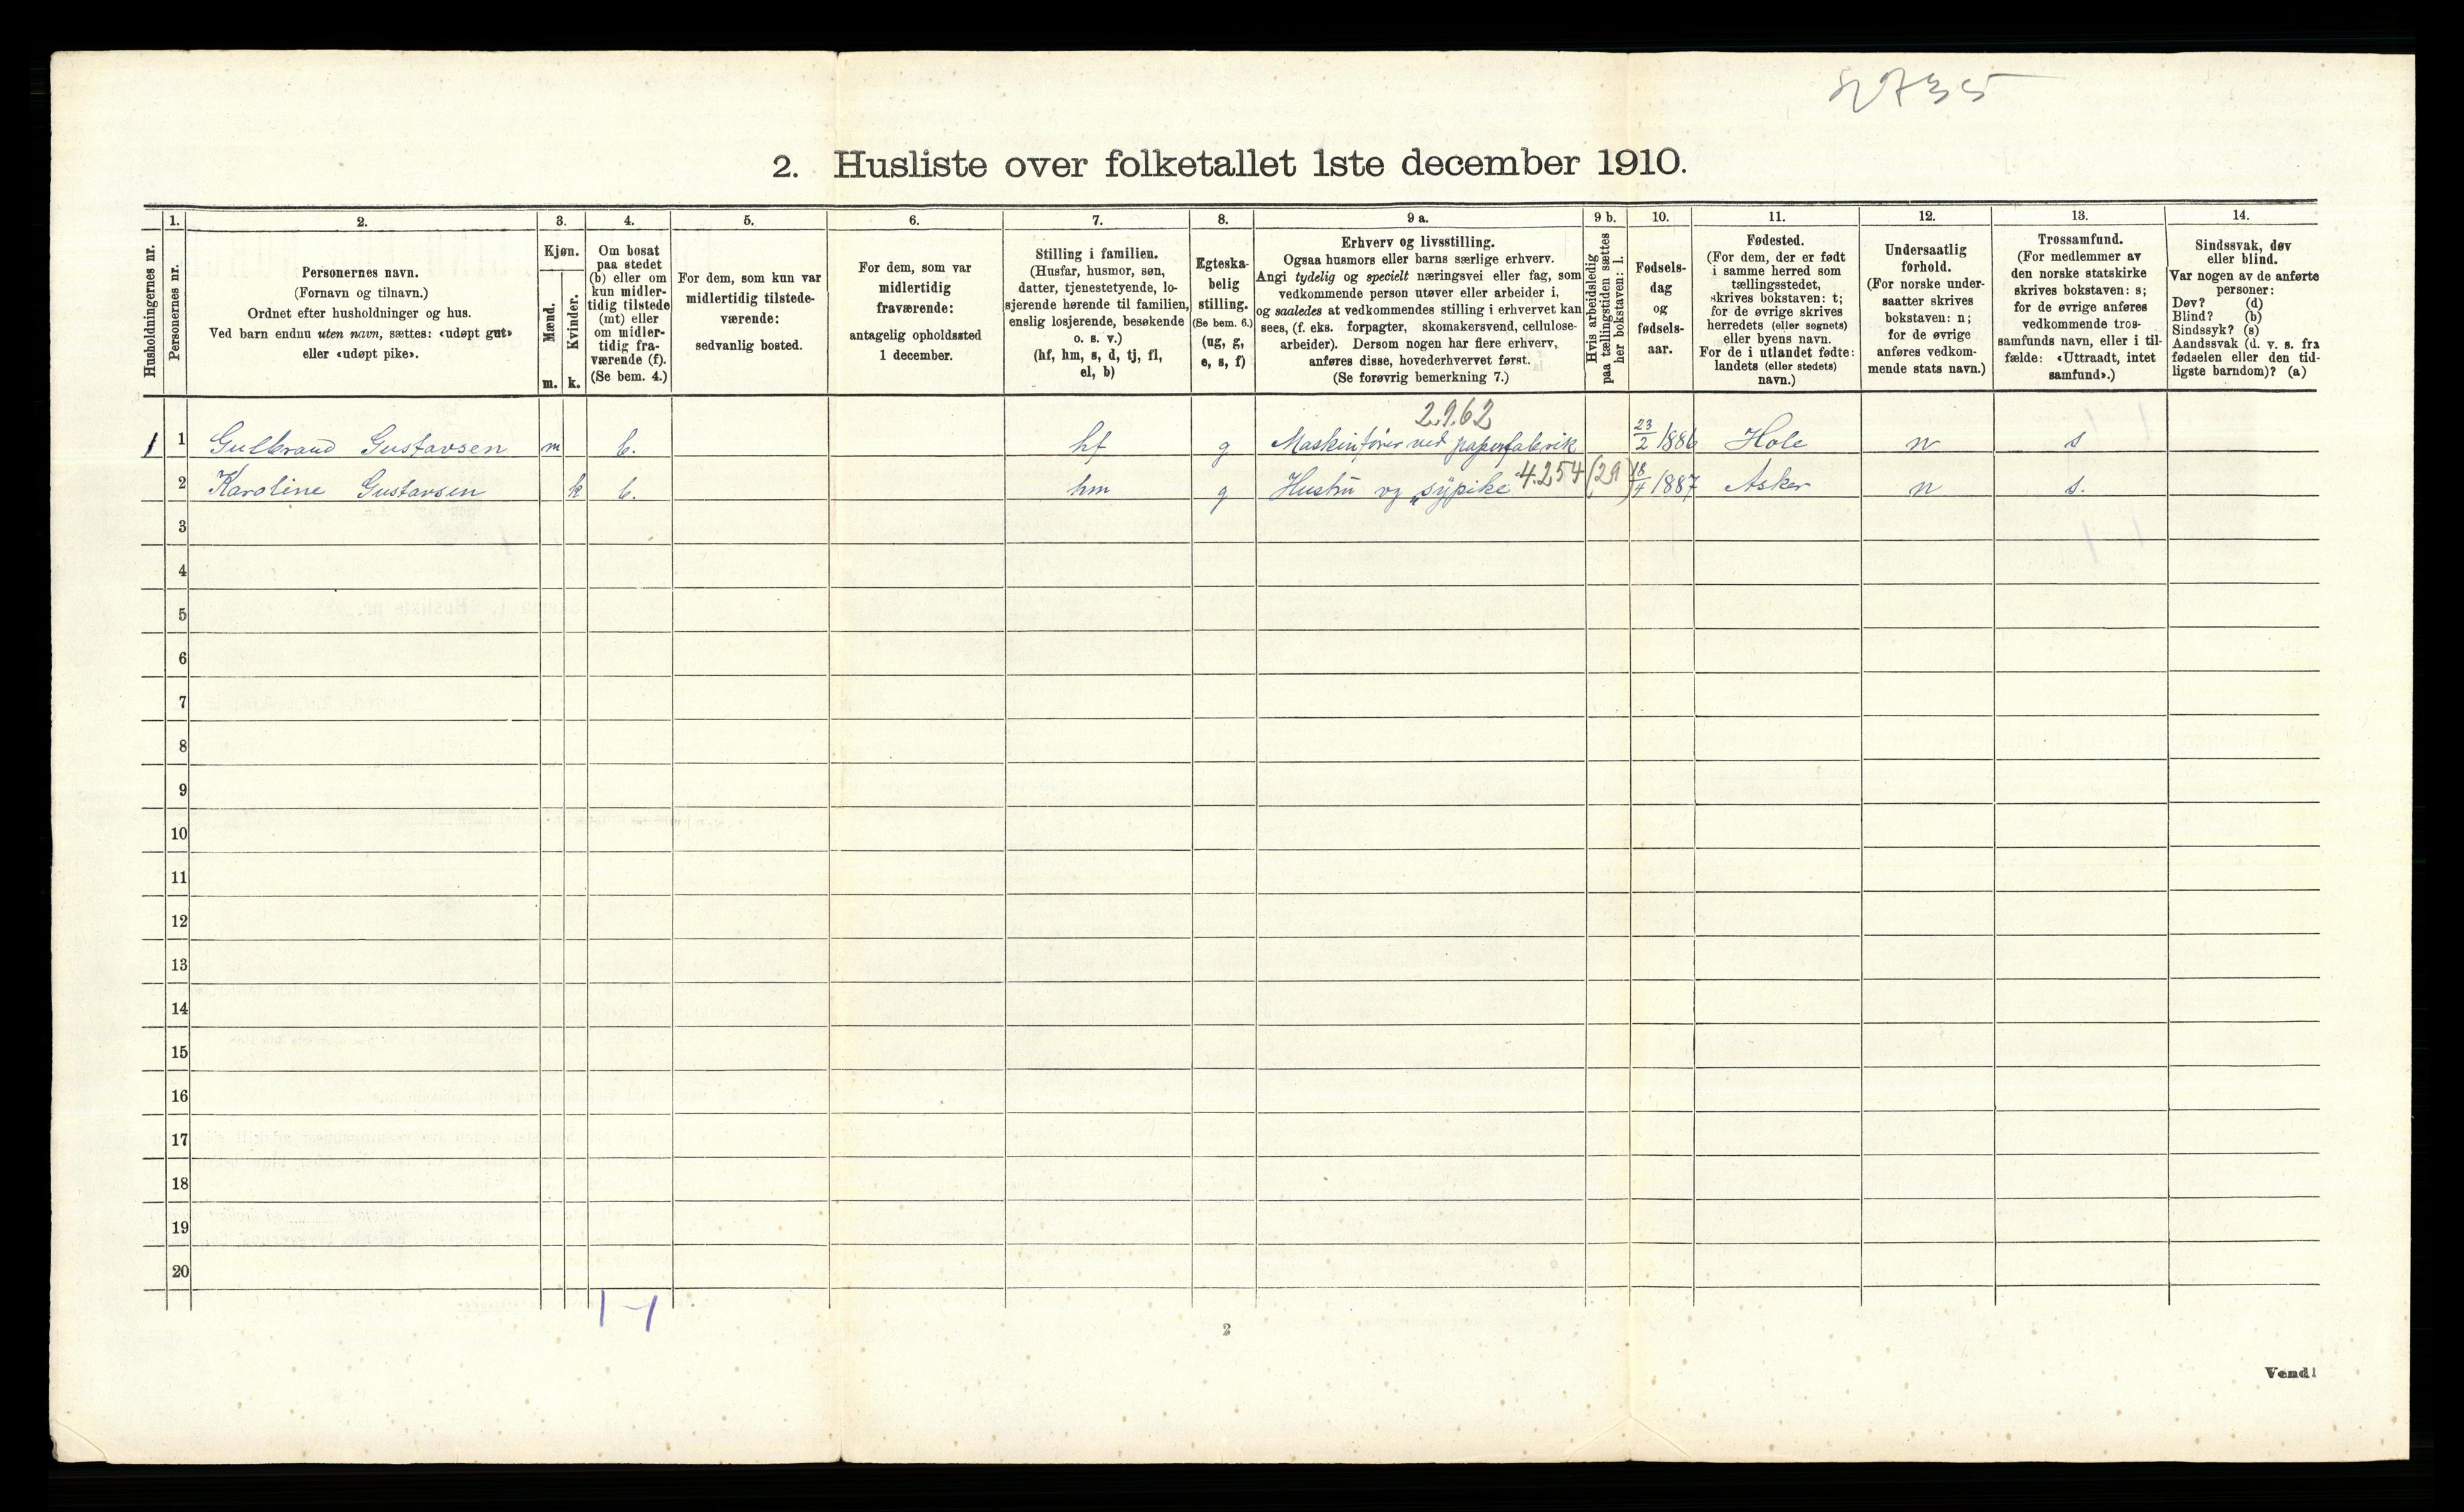 8735
2. Husliste over folketallet 1ste december 1910.
Husholdningernes nr.
1.
Personernes nr.
2.
Personernes navn.
(Fornavn og tilnavn.)
Ordnet efter husholdninger og hus.
Ved barn endnu uten navn, sættes: «udøpt gut»
eller «udøpt pike».
3.
Kjøn.
Mænd.
m.
Kvinder.
k.
4.
Om bosat
paa stedet
(b) eller om
kun midler-
tidig tilstede
(mt) eller
om midler-
tidig fra-
værende (f).
(Se bem. 4.)
5.
For dem, som kun var
midlertidig tilstede-
værende:
sedvanlig bosted.
6.
For dem, som var
midlertidig
fraværende:
antagelig opholdssted
1 december.
7.
Stilling i familien.
(Husfar, husmor, søn,
datter, tjenestetyende, lo-
sjerende hørende til familien,
enslig losjerende, besøkende
o. s. v.)
(hf, hm, s, d, tj, fl,
el, b)
8.
Egteska-
belig
stilling.
(Se bem. 6.)
(ug, g,
e, s, f)
9 a.
Erhverv og livsstilling.
Ogsaa husmors eller barns særlige erhverv.
Angi tydelig og specielt næringsvei eller fag, som
vedkommende person utøver eller arbeider i,
og saaledes at vedkommendes stilling i erhvervet kan
sees, (f. eks. forpagter, skomakersvend, cellulose-
arbeider). Dersom nogen har flere erhverv,
anføres disse, hovederhvervet først.
(Se forøvrig bemerkning 7.)
9 b.
Hvis arbeidsledig
paa tællingstiden sættes
her bokstaven: l.
10.
Fødsels-
dag
og
fødsels-
aar.
11.
Fødested.
(For dem, der er født
i samme herred som
tællingsstedet,
skrives bokstaven: t;
for de øvrige skrives
herredets (eller sognets)
eller byens navn.
For de i utlandet fødte:
landets (eller stedets)
navn.)
12.
Undersaatlig
forhold.
(For norske under-
saatter skrives
bokstaven: n;
for de øvrige
anføres vedkom-
mende stats navn.)
13.
Trossamfund.
(For medlemmer av
den norske statskirke
skrives bokstaven: s;
for de øvrige anføres
vedkommende tros-
samfunds navn, eller i til-
fælde: «Uttraadt, intet
samfund».)
14.
Sindssvak, døv
eller blind.
Var nogen av de anførte
personer:
Døv? (d)
Blind? (b)
Sindssyk? (s)
Aandssvak (d. v. s. fra
fødselen eller den tid-
ligste barndom)? (a)
2.9.62
1 1 Gulbrand Gustavsen m b. hf g Maskinfører ved papirfabrik 23/2 1886 Hole n s
2 Karoline Gustavsen k b. hm g Hustru og "sypike 4.254 (29) 18/4 1887 Asker n s.
3
4
5
6
7
8
9
10
11
12
13
14
15
16
17
18
19
20
1-1
2
Vend!